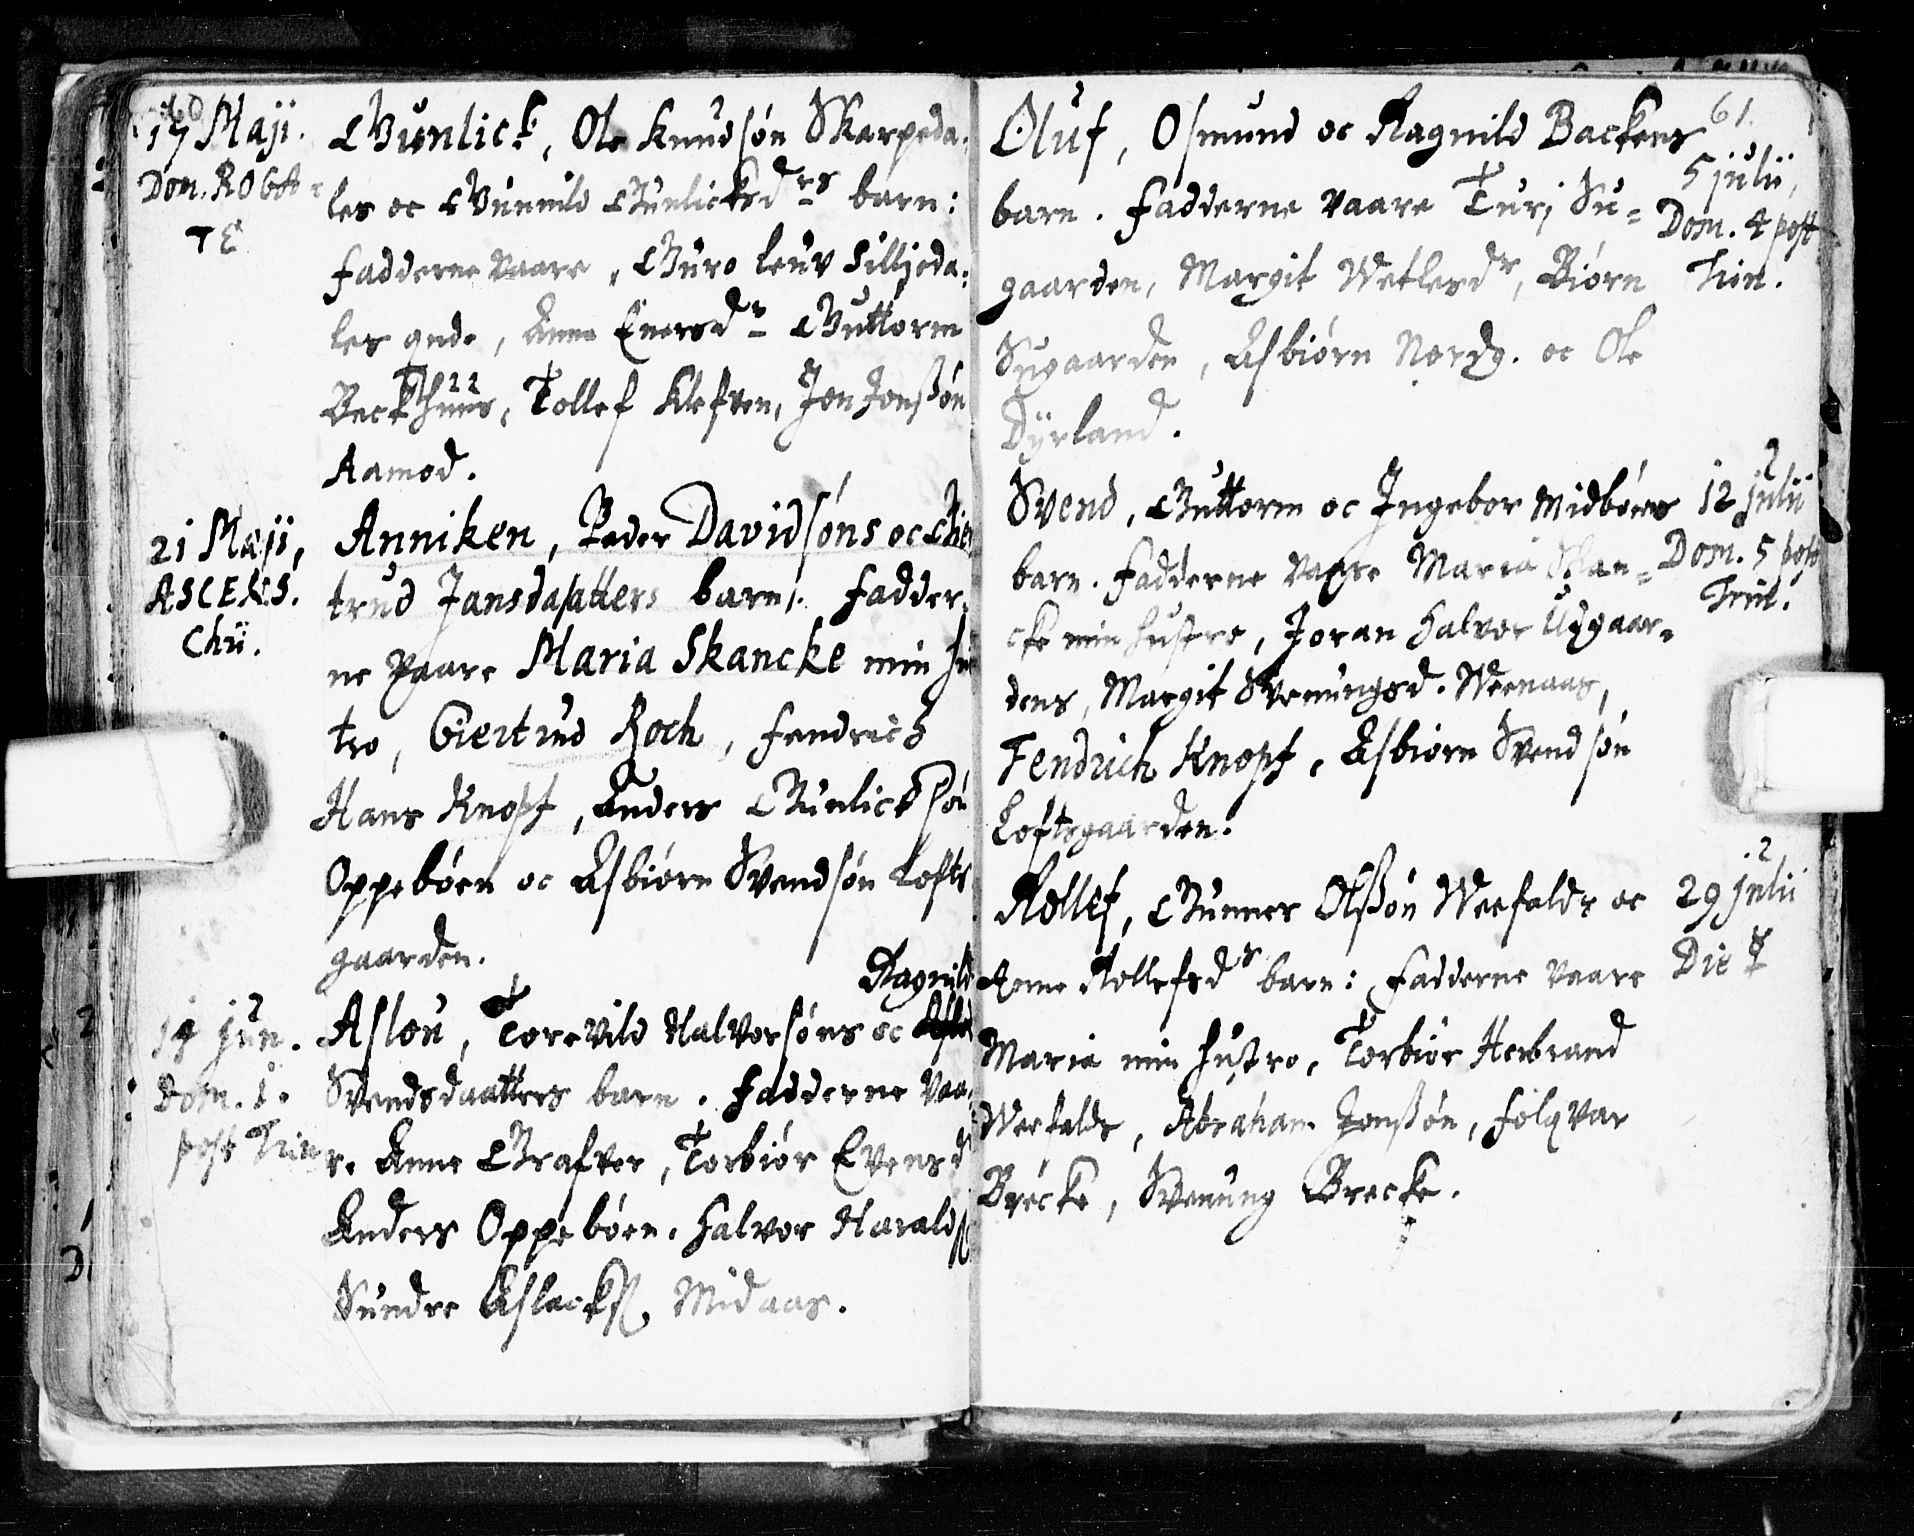 17 Maji.
Dom. Roga=
TE
Gunlick, Ole Knudsøn Skarpeda=
les oc Gunnild Gunlicksdrs barn:
fadderne vaare, Guro leuv Silljoda=
les gnde, Anne Enersdr Guttorm
Beckhuus, Tollef Klefven, Jon Jonssøn
Aamod.
21 Maji,
ASCENS.
Chri.
Anniken, Peder Davidsøns oc Gier
trud Jansdaatters barn. fadder=
ne vaare Maria Skancke min hu
tro, Giertrud Koch, fendrich
Hans Knopf, Anders Gunlicksøn
Oppebøen oc Asbiørn Svendsøn Lofts
gaarden.
Ragnild
14 jun.
Dom. 1.
post Trin
Aslou, Torevild Halvorsøns oc
Svendsdaatters barn. fadderne vaa=
re Anne Grafver, Torbiør Evensd
Anders Oppebøen, Halvor Haralds
Sundre Aslacks. Midaas.
61.
Oluf, Osmund oc Ragnild Backens
barn. fadderne vaare Turj Su=
gaarden, Margit Wetlesdr, Biørn
Sugaarden, Asbiørn Nordg. oc Ole
Dyrland.
5 julii,
Dom. 4 post
Trin.
Svend, Guttorm oc Ingebor Midbøens
barn. fadderne vaare Maria Skan=
cke min hustro, Joran Halvor Uygaar=
dens, Margit Svenungsd. Weenaas,
Fendrich Knopf, Asbiørn Svendsøn
Loftsgaarden.
12 julii
Dom. 5 post
Trin.
Rollef, Gunner Olssøn Weefalds oc
Anne Rollefsdrs barn: Fadderne vaare
Maria min hustro, Torbiør Herbrand
Weefalds, Abraham Jonssøn, folqvar
Brecke, Svenung Brecke.
29 julii
Die ☿